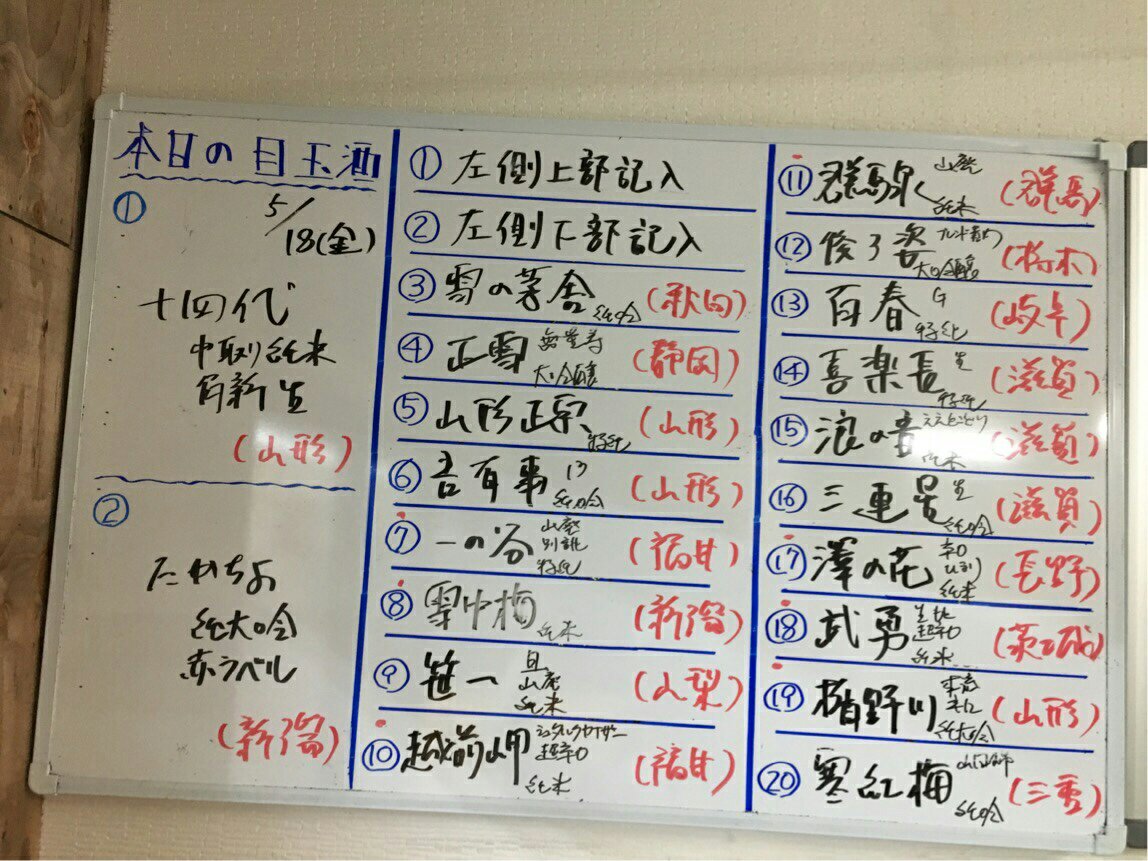 本日の目玉酒
① 5/18(金)
十四代
中取り純米
角新 生
(山形)
②
たかちよ
純大吟
赤ラベル
(新潟)
① 左側上部記入
② 左側下部記入
③ 雪の茅舎 純吟 (秋田)
④ 正雪 大吟醸 (静岡)
⑤ 山形正宗 特純 (山形)
⑥ 吾有事 純吟 (山形)
⑦ 一の谷 山廃 別誂 特純 (福井)
⑧ 雪中梅 純米 (新潟)
⑨ 笹一 旦 山廃 純米 (山梨)
⑩ 越前岬 超辛口 純米 (福井)
⑪ 群馬泉 山廃 純米 (群馬)
⑫ 大吟醸 (栃木)
⑬ 百春 G 特純 (岐阜)
⑭ 喜楽長 生 特純 (滋賀)
⑮ 浪の音 ええとこどり 純米 (滋賀)
⑯ 三連星 生 純吟 (滋賀)
⑰ 澤の花 辛口 純米 (長野)
⑱ 武勇 生酛 超辛口 純米 (茨城)
⑲ 楯野川 純大吟 (山形)
⑳ 寒紅梅 純吟 (三重)